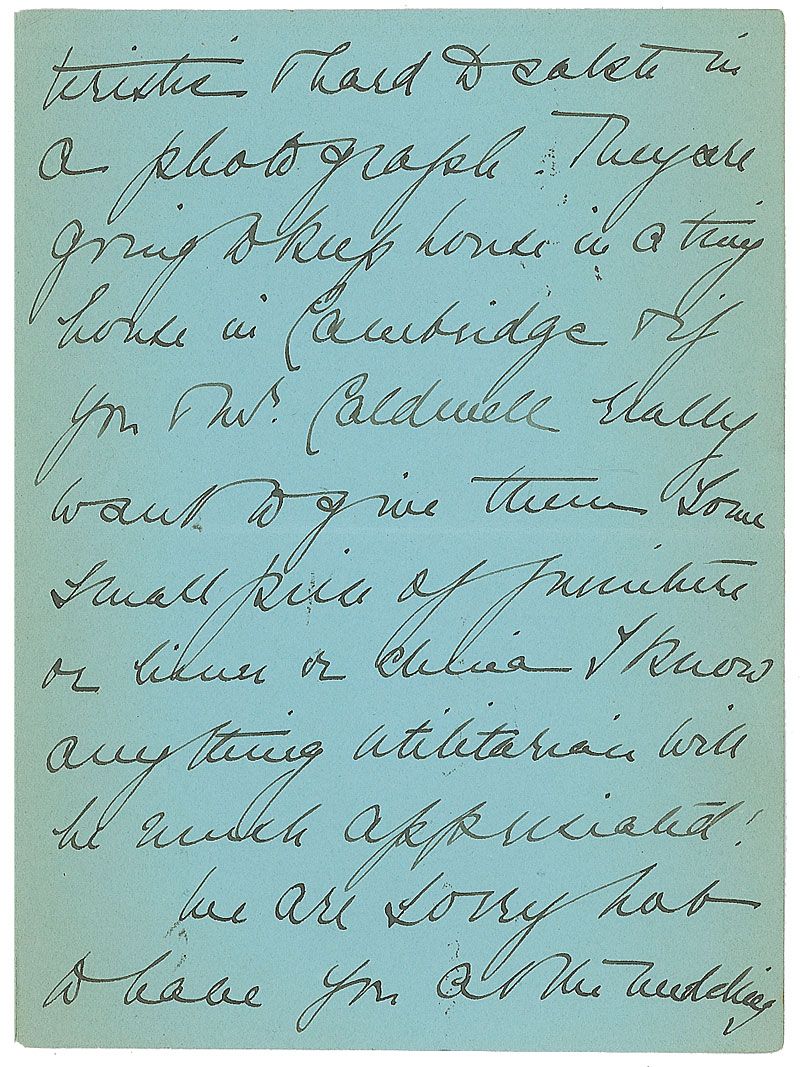 teristic & hard to catch in
a photograph. They are
going to keep house in a tiny
house in Cambridge & if
you & Mr. Caldwell really
want to give them some
small piece of furniture
or linen or china I know
anything utilitarian will
be much appreciated!
We are sorry not
to have you at the wedding